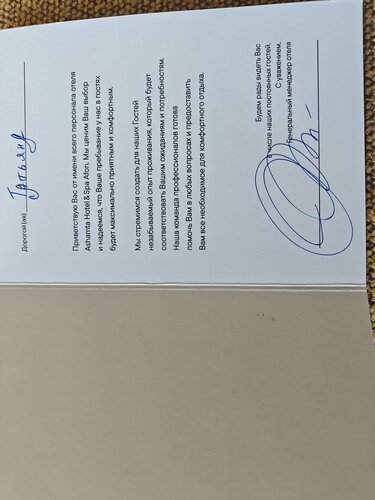 Дорогой (ая) Татьяна
Приветствую Вас от имени всего персонала отеля
Ashamta Hotel & Spa Afon. Мы ценим Ваш выбор
и надеемся, что Ваше пребывание у нас в гостях
будет максимально приятным и комфортным.
Мы стремимся создать для наших Гостей
незабываемый опыт проживания, который будет
соответствовать Вашим ожиданиям и потребностям.
Наша команда профессионалов готова
помочь Вам в любых вопросах и предоставить
Вам все необходимое для комфортного отдыха.
Будем рады видеть Вас
в числе наших постоянных гостей.
С уважением,
Генеральный менеджер отеля